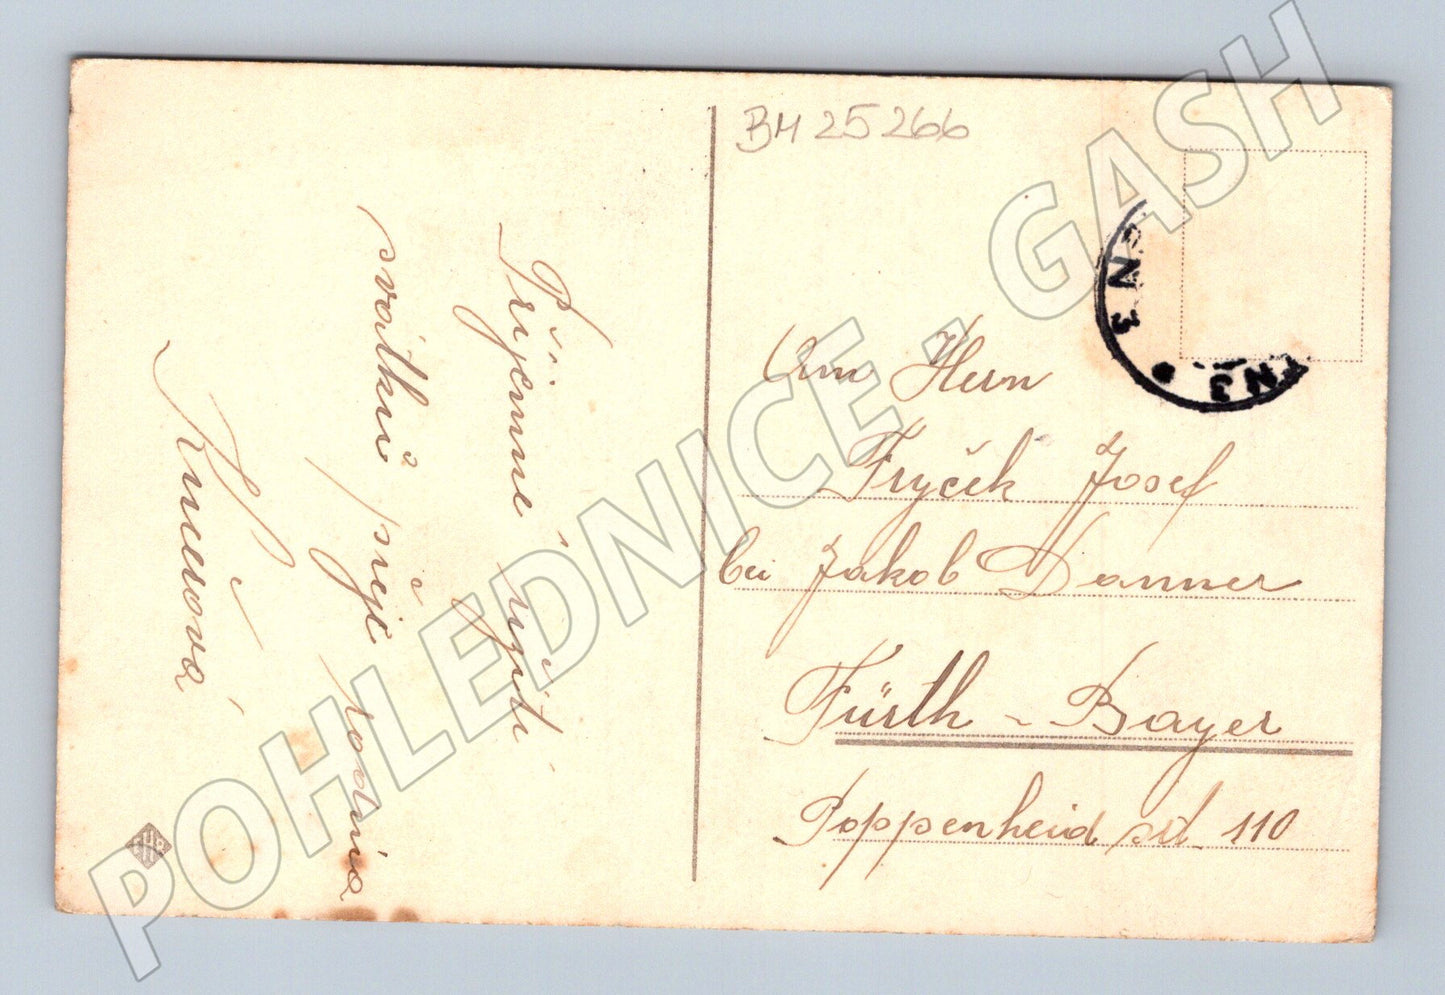 BM 25266
Příjemné užití
svátků přeje rodina
Kučerová
An Herrn
Fryček Josef
bei Jakob Danner
Fürth - Bayer
Poppenheid str. 110
N 3
N3
POHLEDNICE - GASH